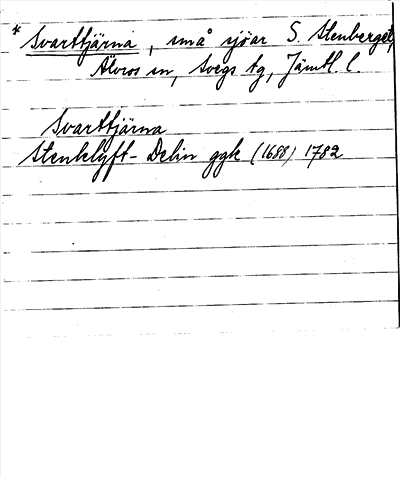 * Svarttjärna, små sjöar S. Stenberget,
Älvros sn, Svegs tg, Jämtl. l.
Svarttjärna
Stenklyft- Delin ggk (1688) 1782